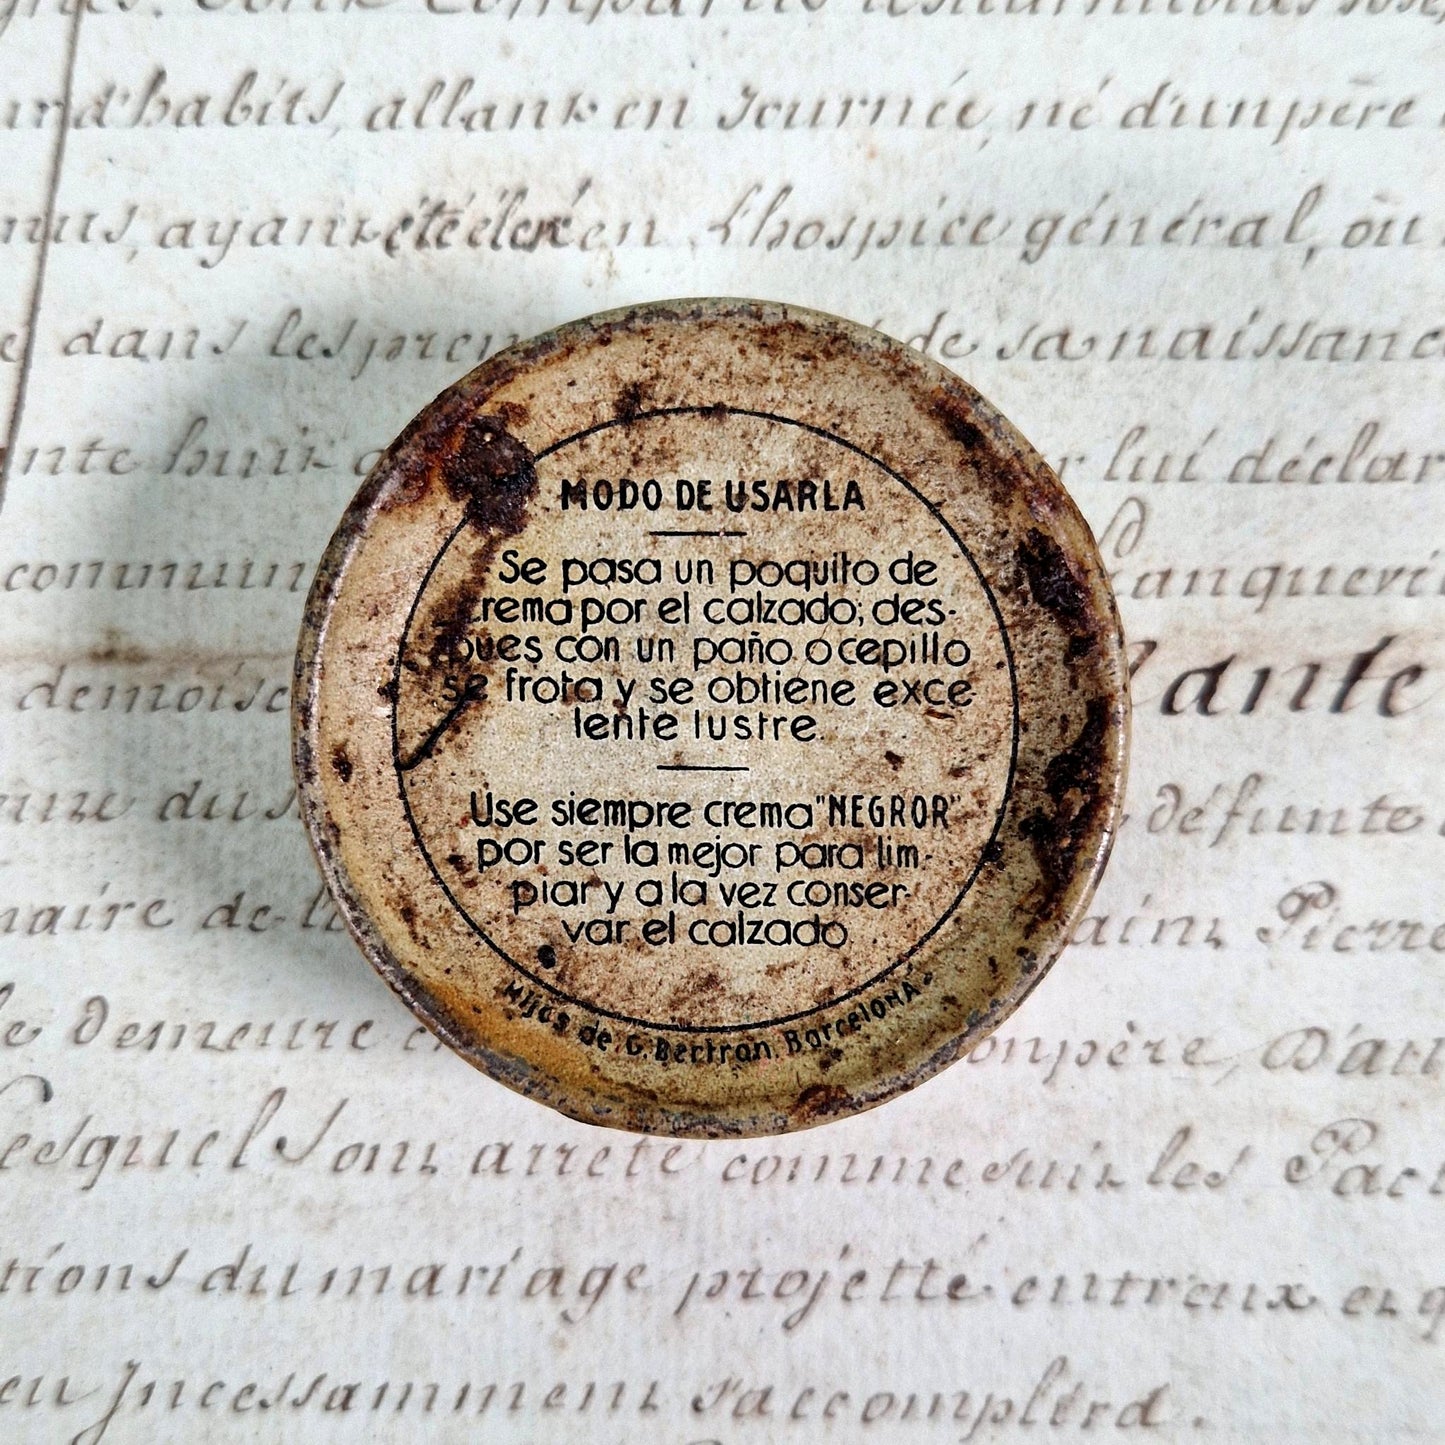 und'habits, allant en Journée, né d'un père
ayant été élevé en L'hospice général, où
dans les de sa naissance
lui déclar
commun
demoise lante
du défunte
naire de Pierre
demeure père, D'au
esquels ont arrêté comme suit les Pact
tions du mariage projetté entreux et q
Incessamment s'accomplira.
MODO DE USARLA
Se pasa un poquito de
crema por el calzado; des-
pues con un paño ó cepillo
se frota y se obtiene exce-
lente lustre.
Use siempre crema "NEGROR"
por ser la mejor para lim-
piar y a la vez conser-
var el calzado
Hijos de G. Bertran. Barcelona